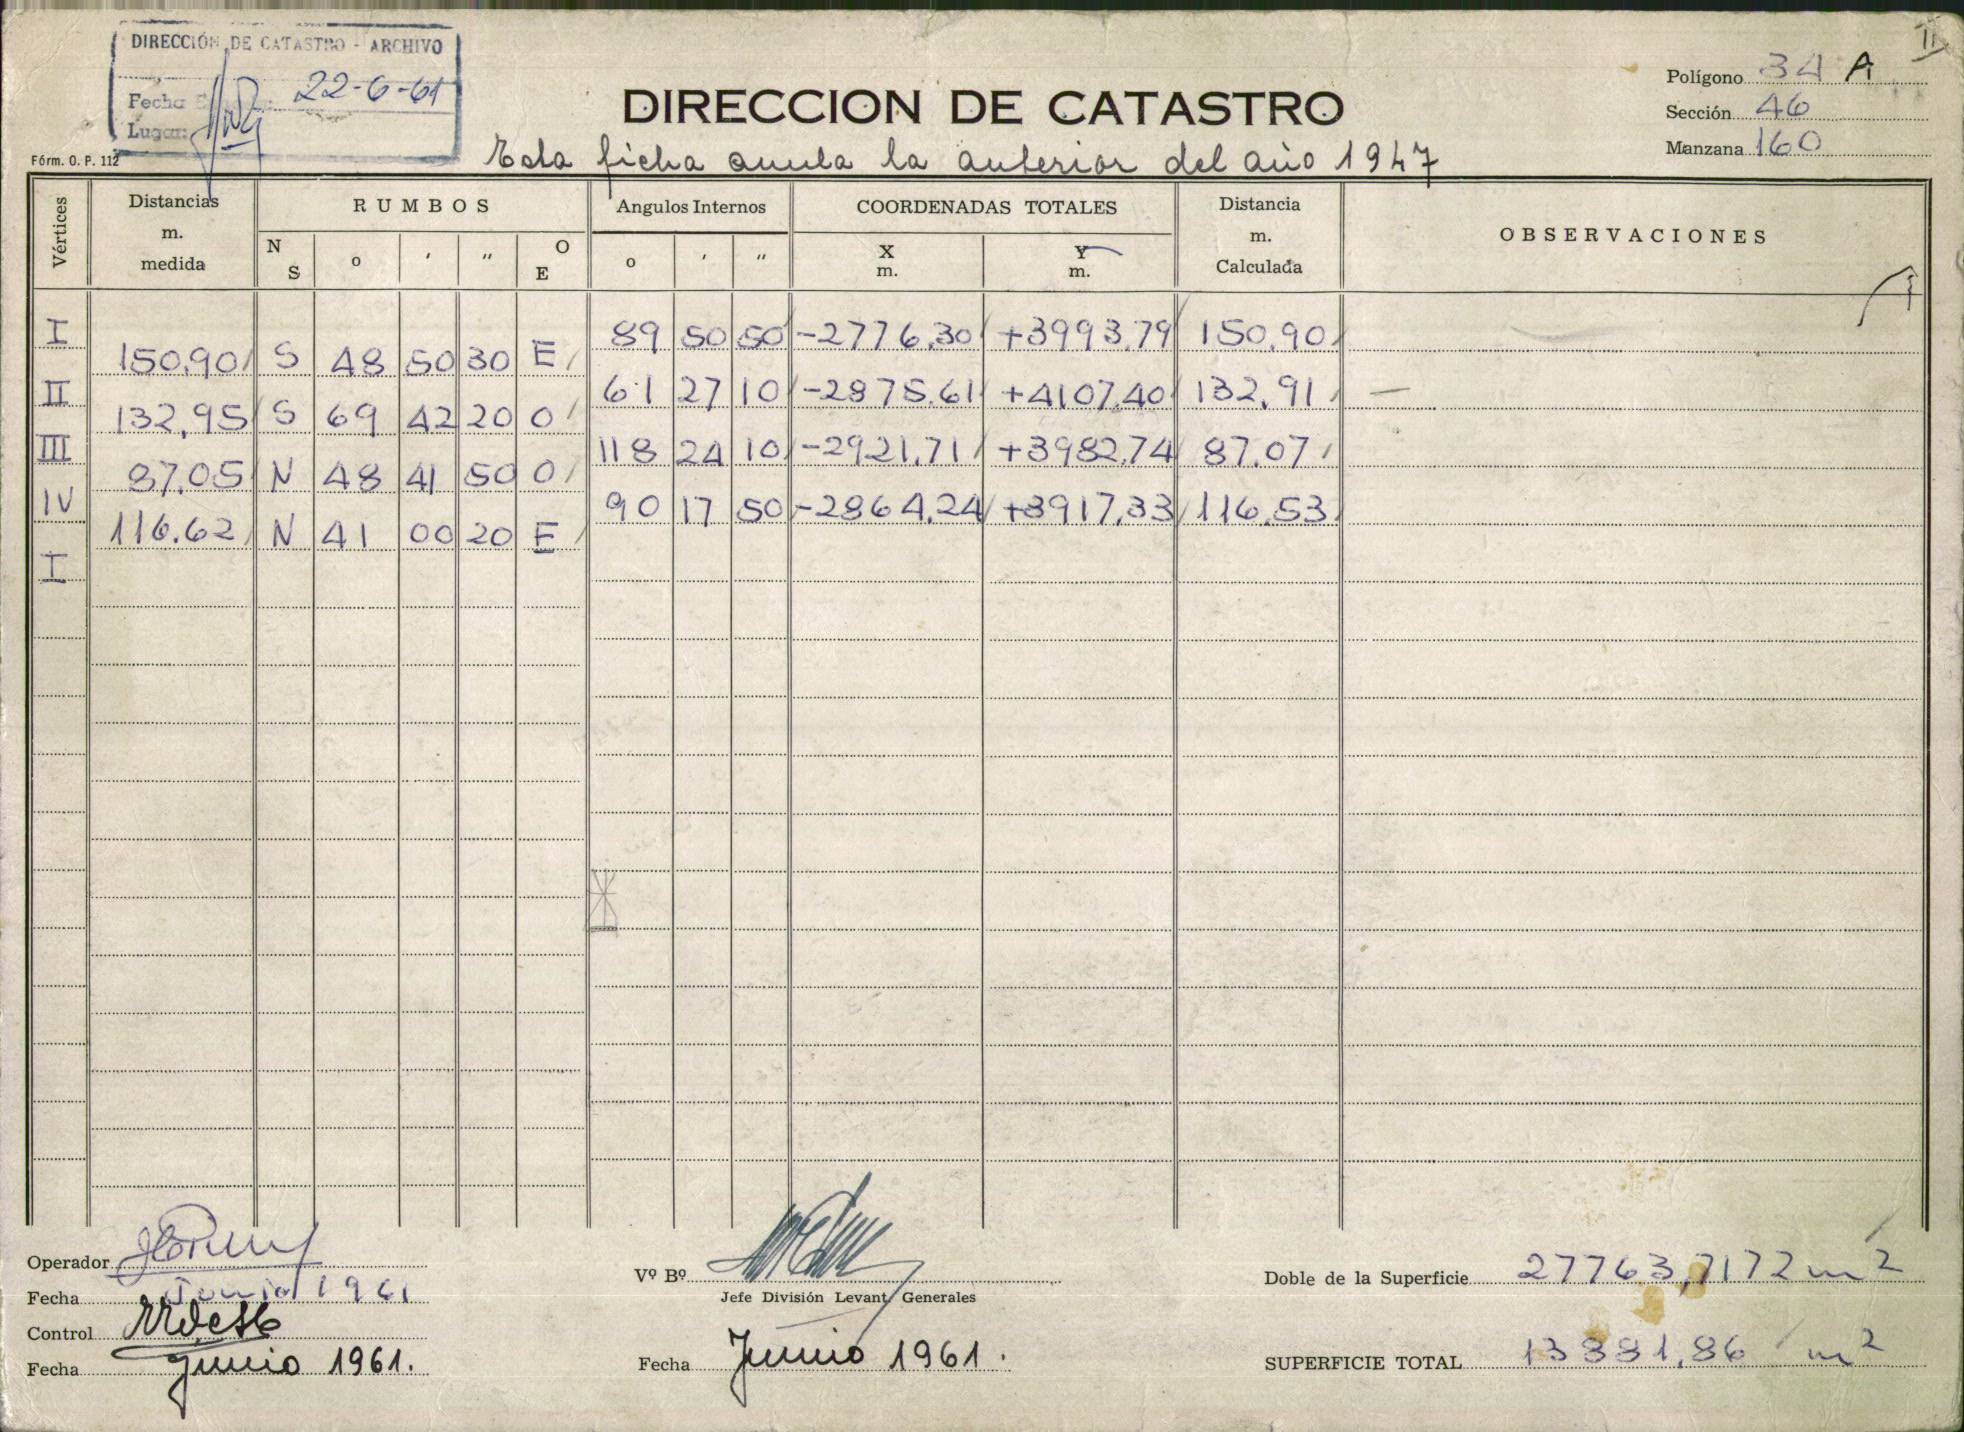 II
DIRECCIÓN DE CATASTRO - ARCHIVO
Fecha 22-6-61
Lugar:
Fórm. O. P. 112
DIRECCION DE CATASTRO
Esta ficha anula la anterior del año 1947
Polígono 34 A
Sección 46
Manzana 160
Vértices Distancias m. medida RUMBOS Angulos Internos COORDENADAS TOTALES Distancia m. Calculada OBSERVACIONES
N S o ' " O E o ' " X m. Y m.
I 89 50 50 -2776,30 +3993,79 150,90
150,90 S 48 50 30 E
II 61 27 10 -2875,61 +4107,40 132,91
132,95 S 69 42 20 O
III 118 24 10 -2921,71 +3982,74 87,07
87,05 N 48 41 50 O
IV 90 17 50 -2864,24 +3917,33 116,53
116,62 N 41 00 20 E
I
Operador
Fecha Junio 1961
Control
Fecha Junio 1961.
Vº Bº
Jefe División Levant. Generales
Fecha Junio 1961.
Doble de la Superficie 27763,7172 m2
SUPERFICIE TOTAL 13881,86 m2